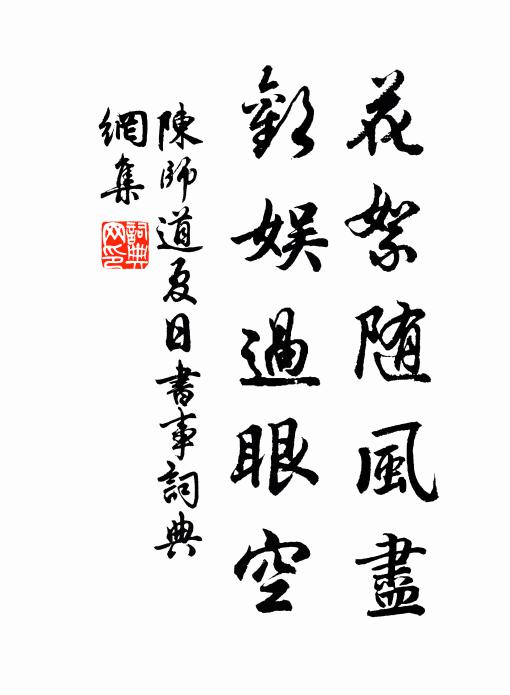 花絮随風盡
歡娱過眼空
陳師道夏日書事詞典
網集
詞典
网印